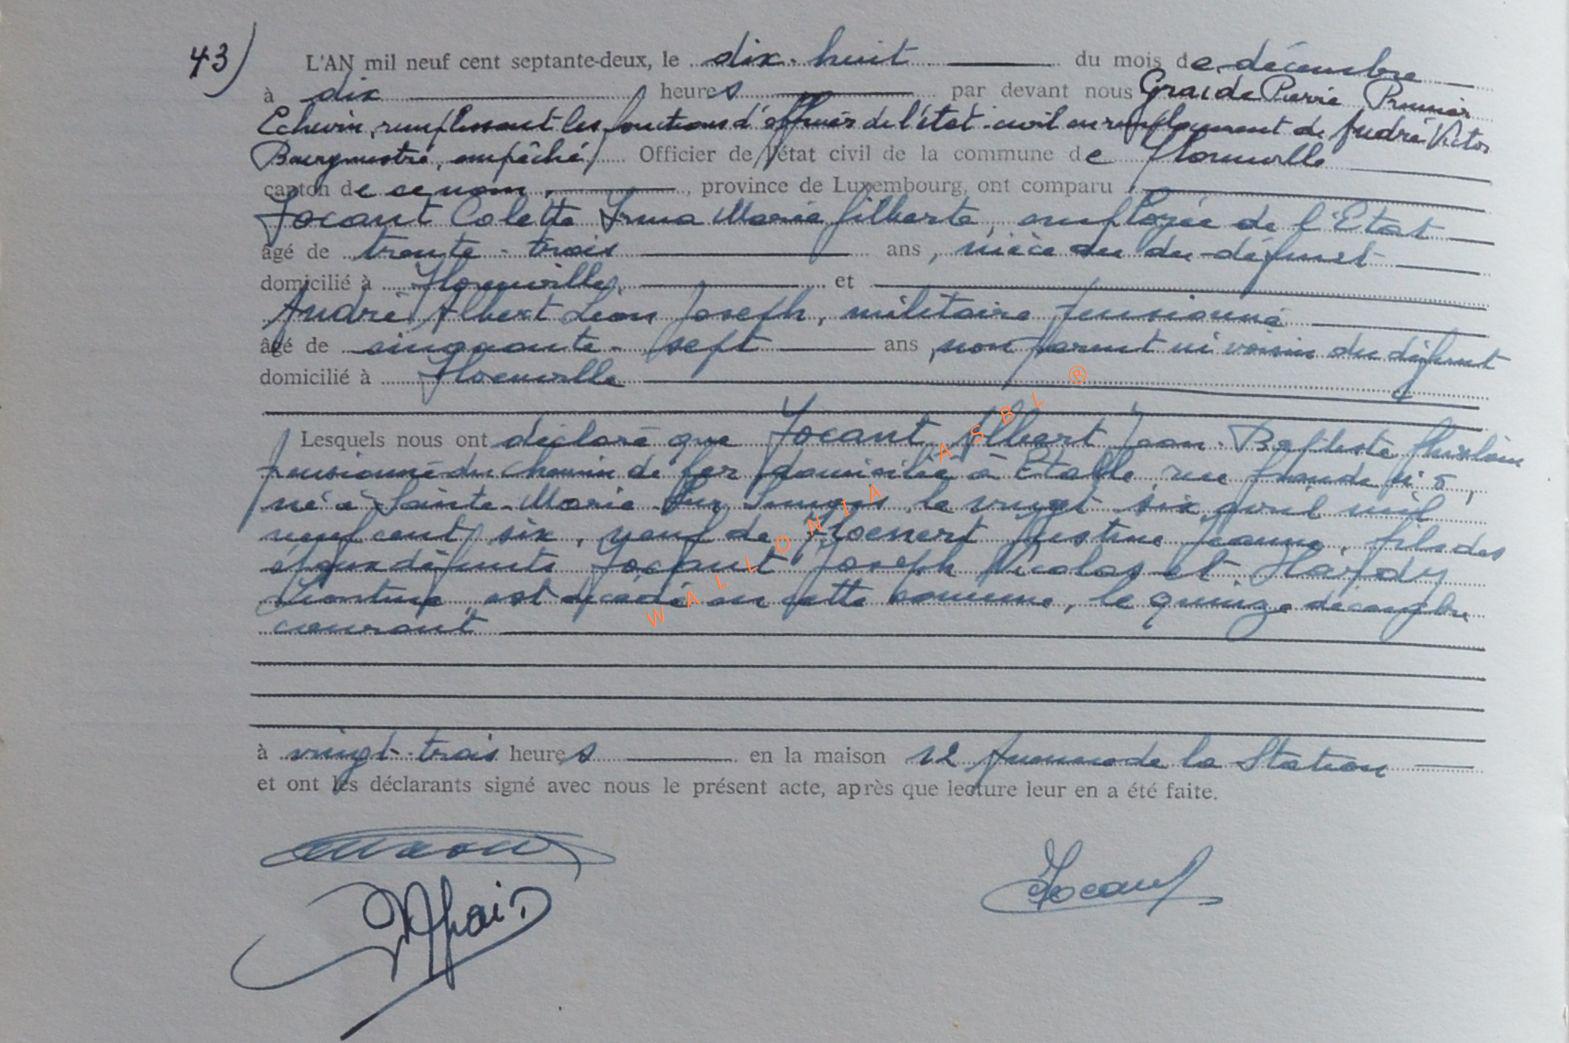 43) L'AN mil neuf cent septante-deux, le dix-huit du mois de décembre
à dix heures par devant nous Pierre, Premier
Echevin, remplissant les fonctions d'officier de l'état-civil en remplacement de André Victor
Bourgmestre, empêché, Officier de l'état civil de la commune de Florenville
canton de ce nom, province de Luxembourg, ont comparu :
Jocant Colette Irma Marie Gilberte, employée de l'Etat
âgé de trente-trois ans, nièce du défunt
domicilié à Florenville, et
André Albert Léon Joseph, militaire pensionné
âgé de cinquante-sept ans, non parent ni voisin du défunt
domicilié à Florenville
Lesquels nous ont déclaré que Jocant Albert Jean-Baptiste Ghislain
pensionné du chemin de fer, domicilié à Etalle, rue
né à Sainte-Marie-sur-Semois, le vingt-six avril mil
neuf cent six, veuf de Justine Jeanne, fils des
époux défunts Jocant Joseph Nicolas et Hardy
est décédé en cette commune, le quinze décembre
courant
à vingt-trois heures en la maison 12 Avenue de la Station
et ont les déclarants signé avec nous le présent acte, après que lecture leur en a été faite.
Jocant
WALLONIA ASBL ®